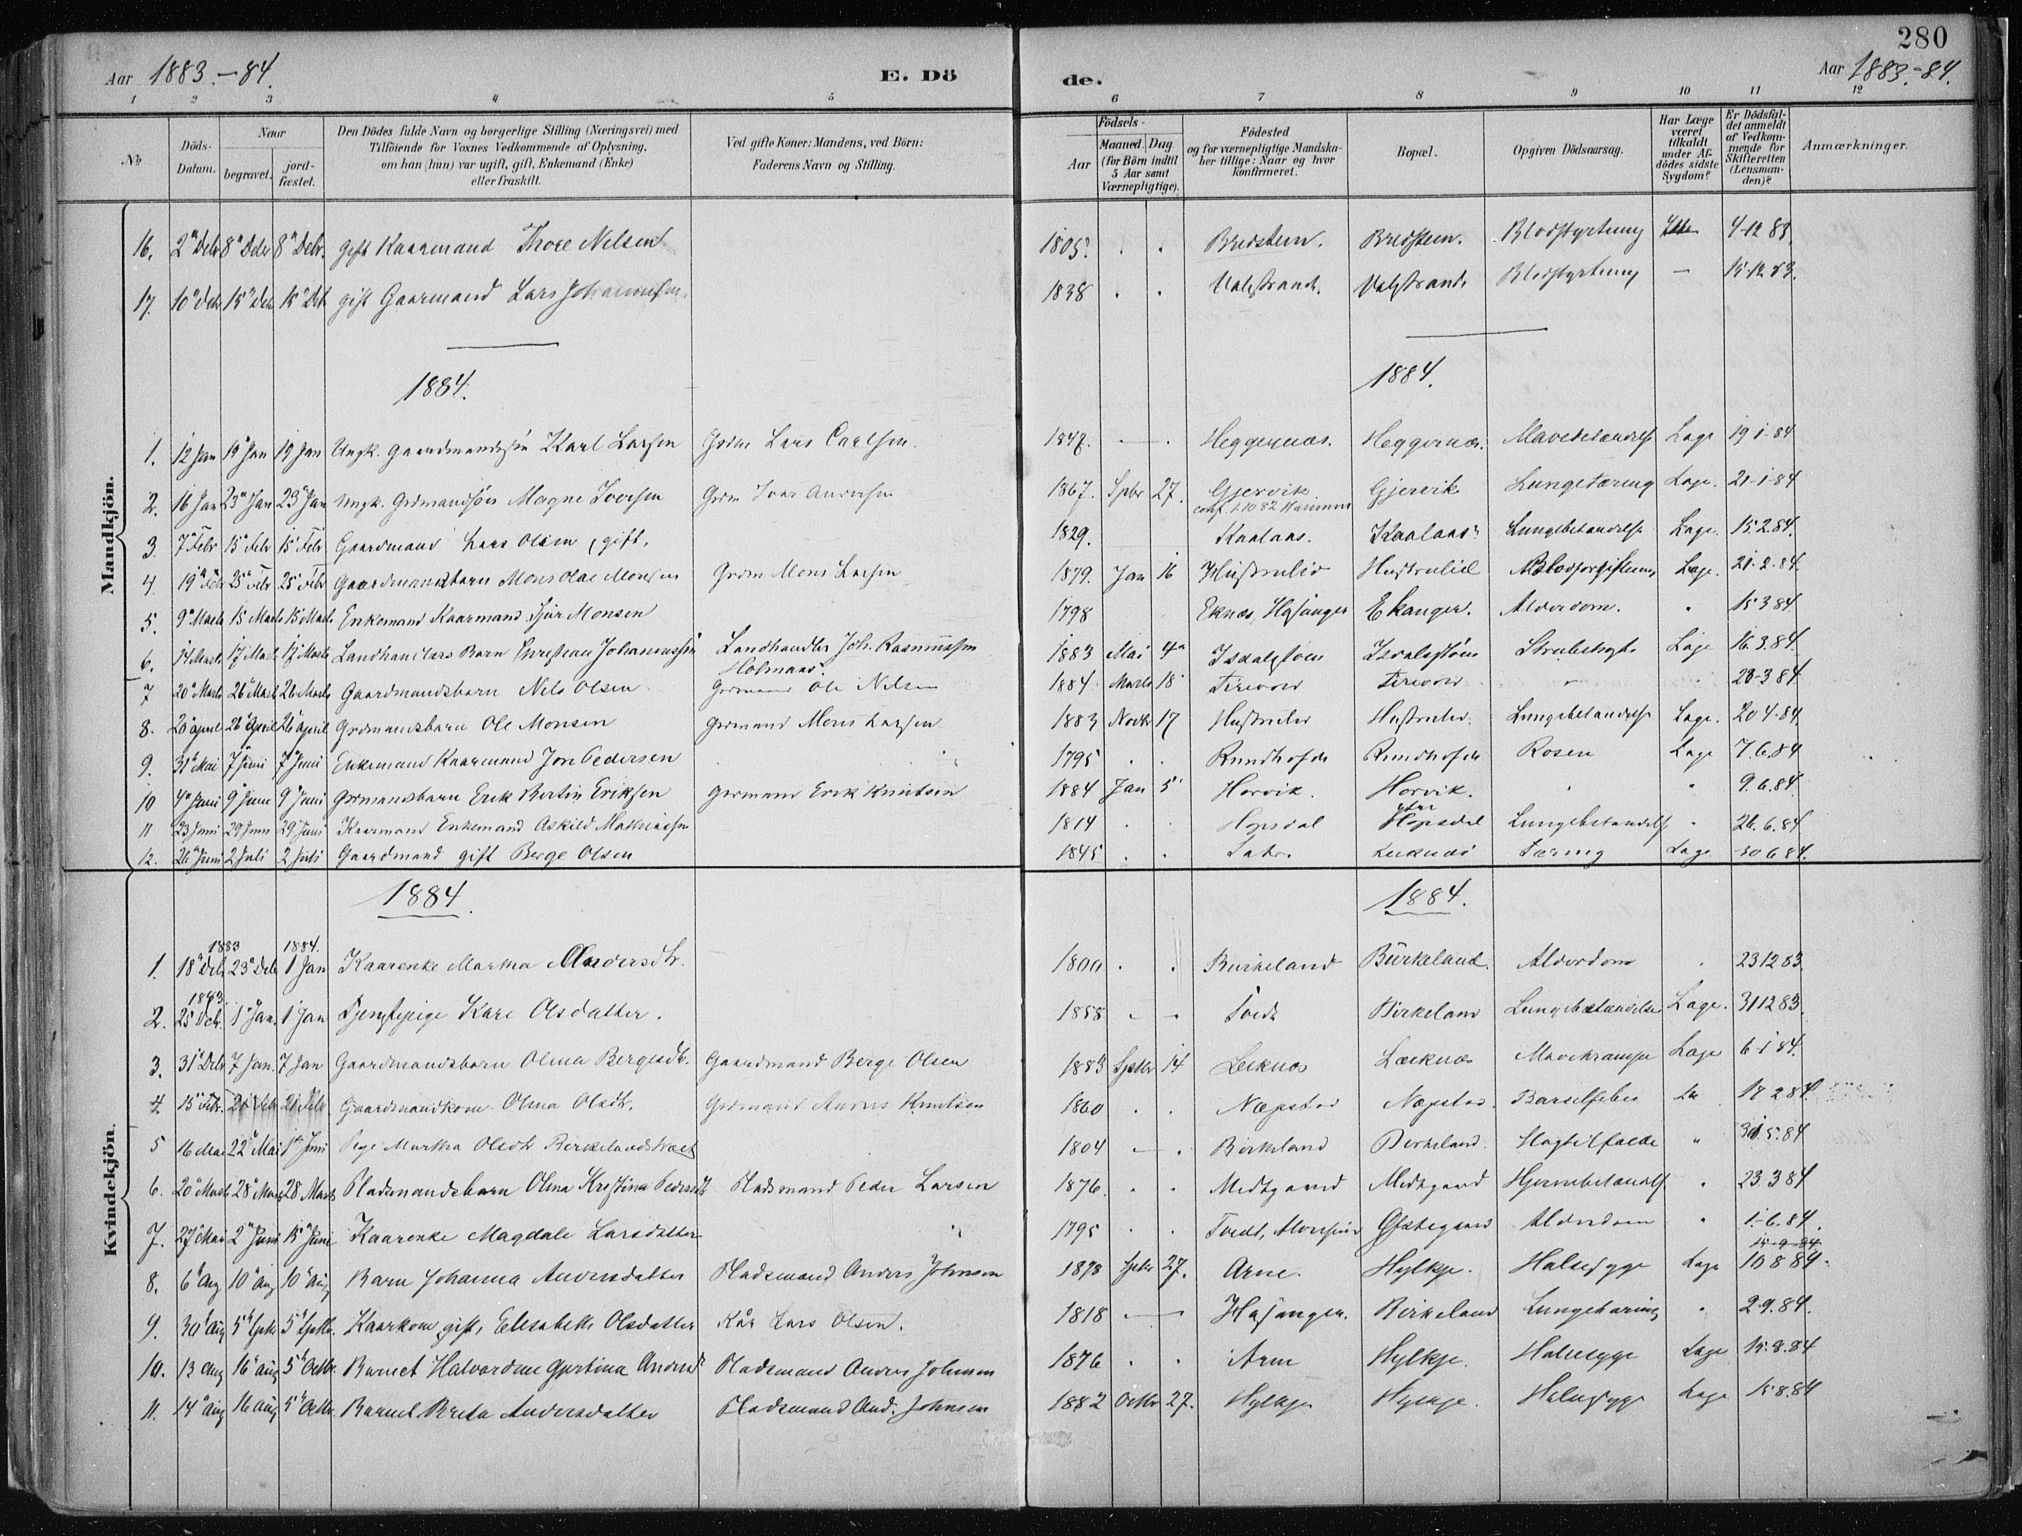 280
Aar 1883.-84. E. Dö de. Aar 1883.-84.
1 2 3 4 5 6 7 8 9 10 11 12
No
Döds-Datum.
Naar
begravet.
jord-fæstet.
Den Dödes fulde Navn og borgerlige Stilling (Næringsvei) med
Tilföiende for Voxnes Vedkommende af Oplysning,
om han (hun) var ugift, gift, Enkemand (Enke)
eller fraskilt.
Ved gifte Koner: Mandens, ved Börn:
Faderens Navn og Stilling.
Födsels-
Aar
Maaned. Dag.
(for Börn indtil
5 Aar samt
Værnepligtige).
Födested
og for værnepligtige Mandska-
ber tillige: Naar og hvor
konfirmeret.
Bopæl.
Opgiven Dödsaarsag.
Har Læge
været
tilkaldt
under Af-
dödes sidste
Sygdom?
Er Dödsfal-
det anmeldt
af Vedkom-
mende for
Skifteretten
(Lensman-
den)?
Anmærkninger.
Mandkjön.
16. 2 Debr 8 Debr 8 Debr. gift Kaarmand Thore Nelsen 1805 . . Bredstein. Bredstein. Blodstyrtning 4-12 83.
17. 10 Debr 15 Deb 15 Deb gift Gaarmand Lars Johannesen. 1838 . . Valestrand. Valestrand. Blodstyrtning — 15-12 83.
1884. 1884.
1. 12 Jan 19 Jan 19 Jan Ungk. Gaardmandssön Karl Larsen Grdm Lars Carlsen. 1847. — . Heggernæs. Heggernæs. Mavebetændelse Læge 19-1-84
2. 16 Jan 23 Jan 23 Jan ungk. Grdmandssön Magne Iversen Grdm Ivar Andersen 1867. Spbr 27. Gjervik conf. 1/10 82 Hammer Gjervik Lungetæring Læge. 21-1-84
3. 7 Febr 15 Febr 15 Febr Gaardmand Lars Olsen, gift. 1829. Kaalaas. Kaalaas Lungebetændelse Læge. 15.2 84.
4. 19 Febr 25 Febr 25 Febr Gaardmandsbarn Mons Olai Monsen Grdm Mons Larsen 1879. Jan 16 Hustrulid Hustrulid Blodforgiftning Læge. 21-2-84.
5. 9 Marts 15 Marts 15 Marts Enkemand Kaarmand Sjur Monsen 1798 Eknæs, Hosanger Ekanger. Alderdom. " 15 3 84
6. 14 Marts 17 Marts 17 Marts Landhandlers Barn Christian Johannessen Landhandler Joh. Rasmussen 1883 Mai 4 Isdalstöen Isdalstöen Strubehoste Læge 16.3.84.
7 20 Marts 26 Marts 26 Marts Gaardmandsbarn Nels Olsen Grdmand Ole Nelsen 1884 Marts 18 " " 28-3 84.
8. 20 april 26 April 26 april Grdmandsbarn Ole Monsen Grdmand Mons Larsen 1883 Novbr 17 Hustrulid Hustrulid. Lungebetændelse Læge. 20 4-84.
9. 31 Mai 7 Juni 7 Juni Enkemand Kaarmand Jon Pedersen 1795 . . Rundhovde Rundhovde Rosen Læge 7.6.84
10 4 Juni 9 Juni 9 Juni Grdmandsbarn Erik Bertin Eriksen Grdmand Erik Knutsen 1884 Jan 5 Horvik. Horvik. " 9.6.84.
11 23 Juni 29 Juni 29 Juni Kaarmand Enkemand Askild Mathiassen 1814 . . Hopsdal Hopsdal Lungebetændelse " 26.6.84
12. 26 Juni 2 Juli 2 Juli Gaardmand gift Berge Olsen 1845 . . Leiknæs Tæring Læge 30 6 84.
Kvindekjön.
1884. 1884.
1883 1884.
1. 18 Deb 23 Deb 1 Jan Kaarenke Martha Andersdtr. 1800 . . Birkeland Birkeland. Alderdom " 23 12 83
1883.
2. 25 1 Jan. 1 Jan Tjenestepige Kari Olsdatter. 1858 — — Tvedt Birkeland Lungebetændelse Læge. 31 12 83.
3. 31 Debr 7 Jan. 7 Jan Gaardmandsbarn Olina Bergesdtr. Gaardmand Berge Olsen 1883 Septbr 14 Leiknæs Leiknæs Mavekrampe Læge 6-1-84.
4. 15 Febr. 21 Febr 21 Febr Gaardmandkone Olina Olsdtr. Grdmand Anders Knutsen 1860 . . Næpstad Næpstad. Barselfeber 18 2 84.
5 16 Mai 22 Mai 1 Juni Pige Martha Olsdtr Birkelandstræet 1804 — . Birkeland Birkeland. " 30.5.84
6. 20 Marts 28 Marts 28 Marts Pladsmandsbarn Olina Kristina Pedersdtr Pladsmand Peder Larsen 1876. . . Midtgaard Midtgaard Hjernebetændelse " 23 3 84
7. 27 Mai 2 Juni 15 Juni Kaarenke Magdale Larsdatter 1795 . . Tvedt, Østegaard Alderdom " 1.-6.84.
15-9 84
8. 6 Aug 10 Aug 10 Aug Barn Johanna Andersdatter Pladsmand Anders Johnsen 1878 Sptbr 27. Arne. Hylkje. Halssyge Læge 10 8 84.
9. 30 Aug 5 Sptbr 5 Sptbr. Kaarkone gift, Elisabeth Olsdatter Kår Lars Olsen. 1818 — Hosanger. Birkeland Lungetæring " 2 9. 84.
10. 13 Aug 16 Aug 5 Octbr. Barnet Halvardine Gjertina Andersd Pladsmand Anders Johnsen 1876 . . Arne Hylkje. Halssyge Læge 15.8.84
11. 14 Aug 16 Aug 5 Octbr Barnet Brita Andersdatter Pladsmand And. Johnsen 1882 Octbr 27. Hylkje Hylkje. Halssyge Læge 15.8.84